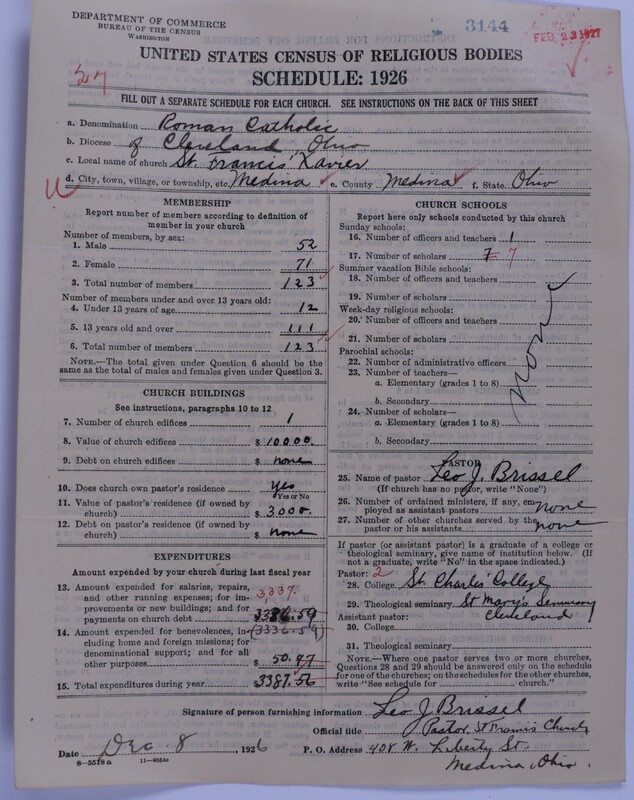 DEPARTMENT OF COMMERCE
BUREAU OF THE CENSUS
WASHINGTON
3144
FEB 23 1927
UNITED STATES CENSUS OF RELIGIOUS BODIES
SCHEDULE: 1926
FILL OUT A SEPARATE SCHEDULE FOR EACH CHURCH. SEE INSTRUCTIONS ON THE BACK OF THIS SHEET
a. Denomination Roman Catholic
b. Diocese of Cleveland, Ohio
c. Local name of church St. Francis Xavier
d. City, town, village, or township, etc. Medina e. County Medina f. State Ohio
MEMBERSHIP
Report number of members according to definition of
member in your church
Number of members, by sex:
1. Male 52
2. Female 71
3. Total number of members 123
Number of members under and over 13 years old:
4. Under 13 years of age 12
5. 13 years old and over 111
6. Total number of members 123
NOTE.—The total given under Question 6 should be the
same as the total of males and females given under Question 3.
CHURCH BUILDINGS
See instructions, paragraphs 10 to 12
7. Number of church edifices 1
8. Value of church edifices $ 10000.
9. Debt on church edifices $ none
10. Does church own pastor's residence Yes
Yes or No
11. Value of pastor's residence (if owned by
church) $ 3000.
12. Debt on pastor's residence (if owned by
church) $ none
EXPENDITURES
Amount expended by your church during last fiscal year
13. Amount expended for salaries, repairs,
and other running expenses; for im- 3,337.
provements or new buildings; and for
payments on church debt 3336.59
14. Amount expended for benevolences, in- (3336.59)
cluding home and foreign missions; for
denominational support; and for all
other purposes $ 50.97
15. Total expenditures during year 3387.56
CHURCH SCHOOLS
Report here only schools conducted by this church
Sunday schools:
16. Number of officers and teachers 1
17. Number of scholars 7 7
Summer vacation Bible schools:
18. Number of officers and teachers
19. Number of scholars
Week-day religious schools:
20. Number of officers and teachers
21. Number of scholars
Parochial schools:
22. Number of administrative officers
23. Number of teachers—
a. Elementary (grades 1 to 8)
b. Secondary
24. Number of scholars—
a. Elementary (grades 1 to 8)
b. Secondary
none
PASTOR
25. Name of pastor Leo J. Brissel
(If church has no pastor, write "None")
26. Number of ordained ministers, if any, em-
ployed as assistant pastors none
27. Number of other churches served by the
pastor or his assistants none
If pastor (or assistant pastor) is a graduate of a college or
theological seminary, give name of institution below. (If
not a graduate, write "No" in the space indicated.)
Pastor: 2
28. College St. Charles College
29. Theological seminary St Mary's Seminary
Assistant pastor: Cleveland
30. College
31. Theological seminary
NOTE.—Where one pastor serves two or more churches,
Questions 28 and 29 should be answered only on the schedule
for one of the churches; on the schedules for the other churches,
write "See schedule for church."
Signature of person furnishing information Leo J Brissel
Official title Pastor, St Francis Church
Date Dec 8, 1926 P. O. Address 408 W. Liberty St.
8—5518a 11—9054 Medina, Ohio.